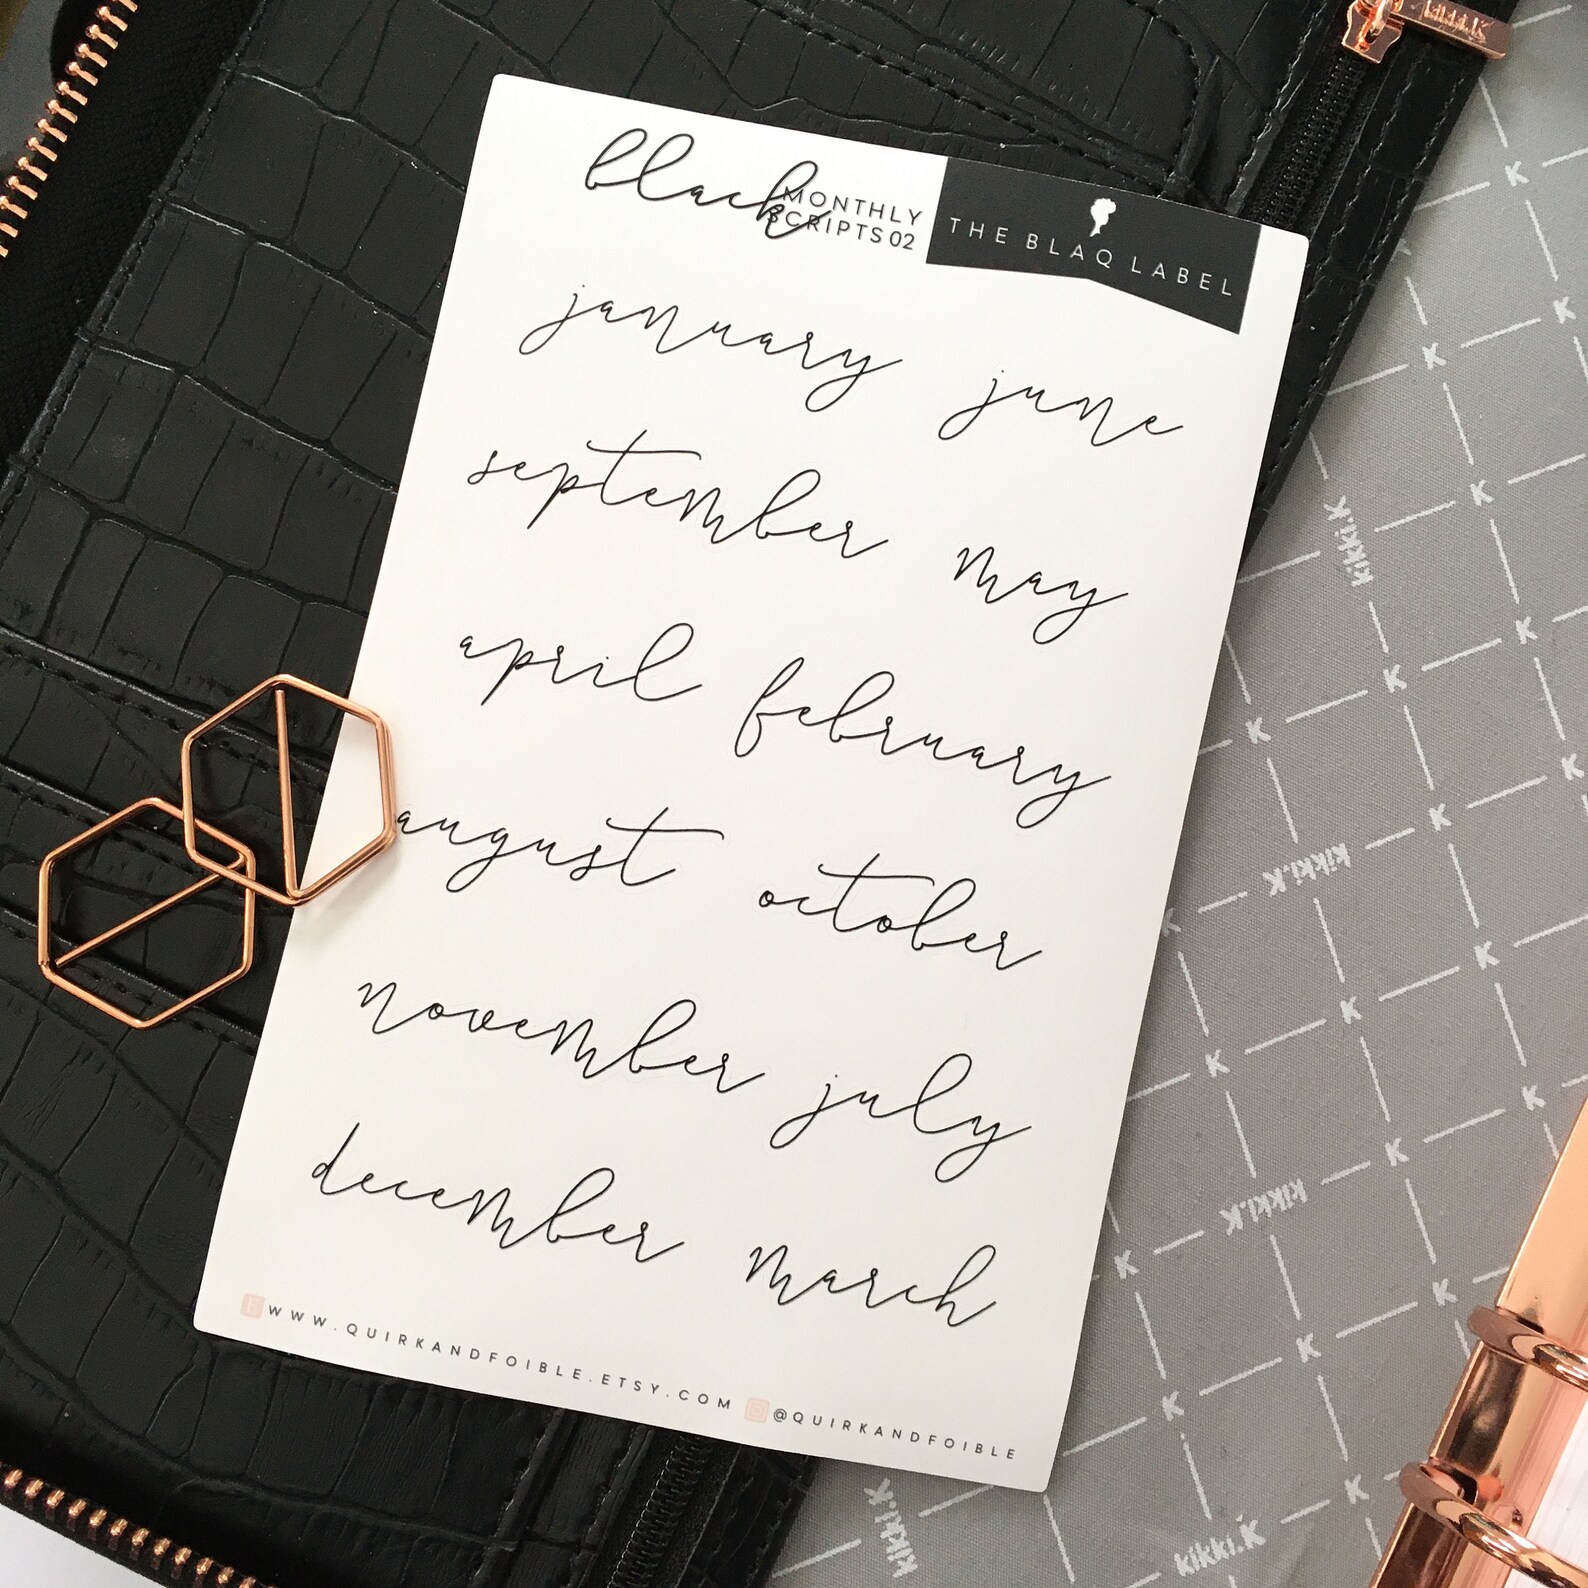 black
MONTHLY
SCRIPTS 02
THE BLAQ LABEL
january june
september may
april february
august october
november july
december march
WWW.QUIRKANDFOIBLE.ETSY.COM @QUIRKANDFOIBLE
kikki.K
kikki.K
kikki.K kikki.K
kikki.K kikki.K
kikki.K
kikki.K